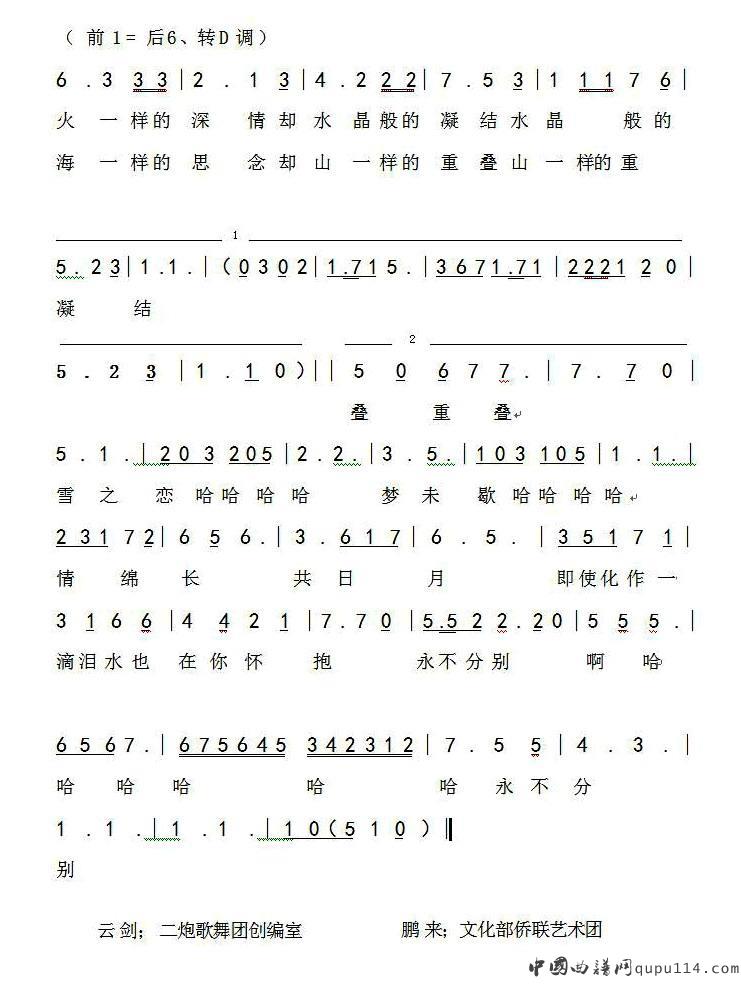 （ 前 1 = 后6、转D 调）
6 . 3 3 3 | 2 . 1 3 | 4 . 2 2 2 | 7 . 5 3 | 1 1 1 7 6 |
火 一 样 的 深 情 却 水 晶 般 的 凝 结 水 晶 般 的
海 一 样 的 思 念 却 山 一 样 的 重 叠 山 一 样 的 重
1
5 . 2 3 | 1 . 1 . | （ 0 3 0 2 | 1 . 7 1 5 . | 3 6 7 1 . 7 1 | 2 2 2 1 2 0 |
凝 结
2
5 . 2 3 | 1 . 1 0 ） | | 5 0 6 7 7 . | 7 . 7 0 |
叠 重 叠
5 . 1 . | 2 0 3 2 0 5 | 2 . 2 . | 3 . 5 . | 1 0 3 1 0 5 | 1 . 1 . |
雪 之 恋 哈 哈 哈 哈 梦 未 歇 哈 哈 哈 哈
2 3 1 7 2 | 6 5 6 . | 3 . 6 1 7 | 6 . 5 . | 3 5 1 7 1 |
情 绵 长 共 日 月 即 使 化 作 一
3 1 6 6 | 4 4 2 1 | 7 . 7 0 | 5 . 5 2 2 . 2 0 | 5 5 5 . |
滴 泪 水 也 在 你 怀 抱 永 不 分 别 啊 哈
6 5 6 7 . | 6 7 5 6 4 5 3 4 2 3 1 2 | 7 . 5 5 | 4 . 3 . |
哈 哈 哈 哈 哈 永 不 分
1 . 1 . | 1 . 1 . | 1 0 （ 5 1 0 ） ‖
别
云 剑； 二炮歌舞团创编室 鹏 来；文化部侨联艺术团
中國曲譜网qupu114.com